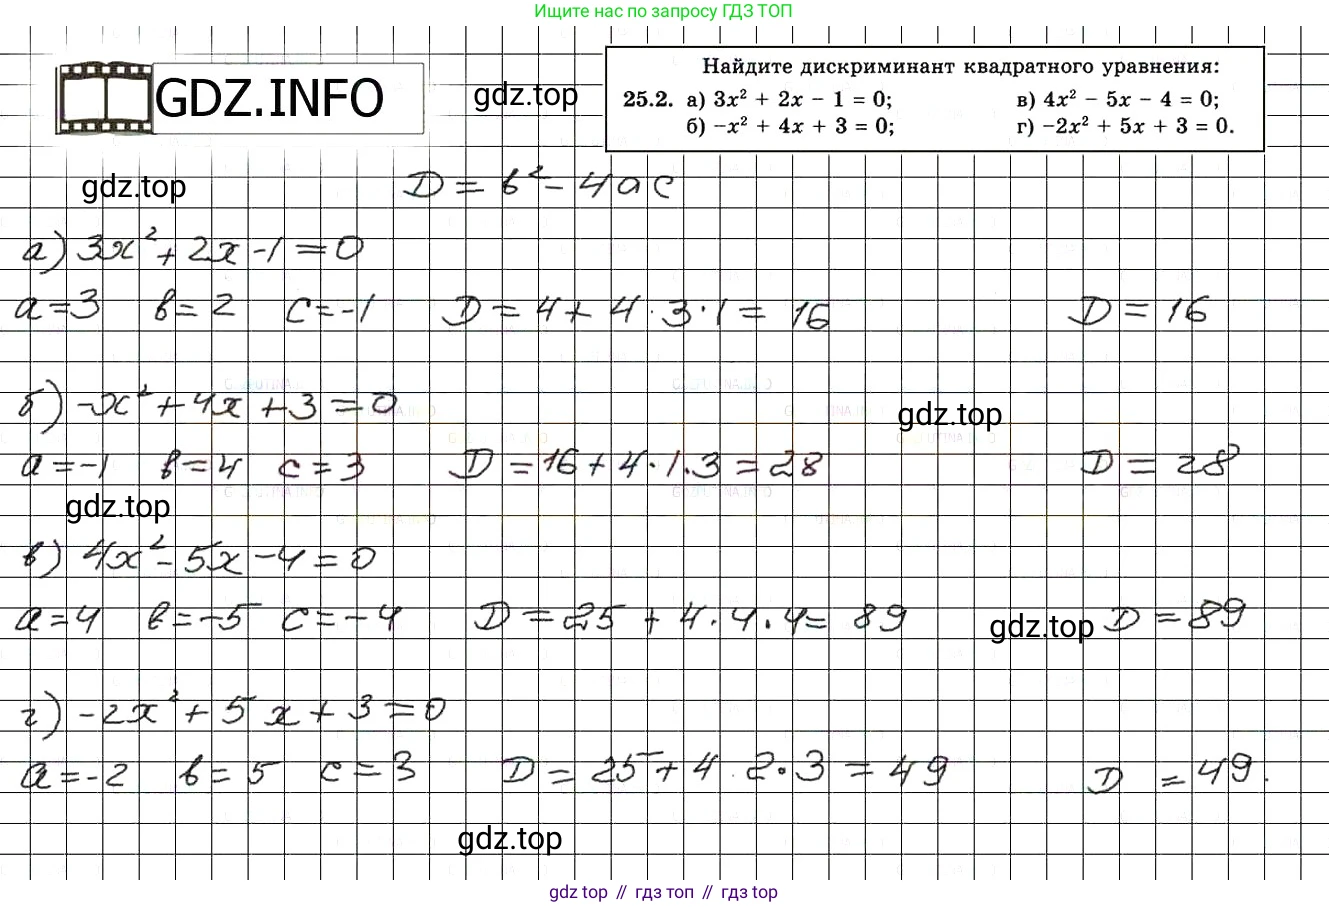 Ищите нас по запросу ГДЗ ТОП
GDZ.INFO
gdz.top
Найдите дискриминант квадратного уравнения:
25.2. а) 3x² + 2x − 1 = 0; в) 4x² − 5x − 4 = 0;
б) −x² + 4x + 3 = 0; г) −2x² + 5x + 3 = 0.
gdz.top D = b² − 4ac
а) 3x² + 2x − 1 = 0
a = 3 b = 2 c = −1 D = 4 + 4 · 3 · 1 = 16 D = 16
б) −x² + 4x + 3 = 0
gdz.top
a = −1 b = 4 c = 3 D = 16 + 4 · 1 · 3 = 28 D = 28
gdz.top
в) 4x² − 5x − 4 = 0
a = 4 b = −5 c = −4 D = 25 + 4 · 4 · 4 = 89 gdz.top D = 89
г) −2x² + 5x + 3 = 0
a = −2 b = 5 c = 3 D = 25 + 4 · 2 · 3 = 49 D = 49.
gdz.top
gdz top // гдз топ // gdz top